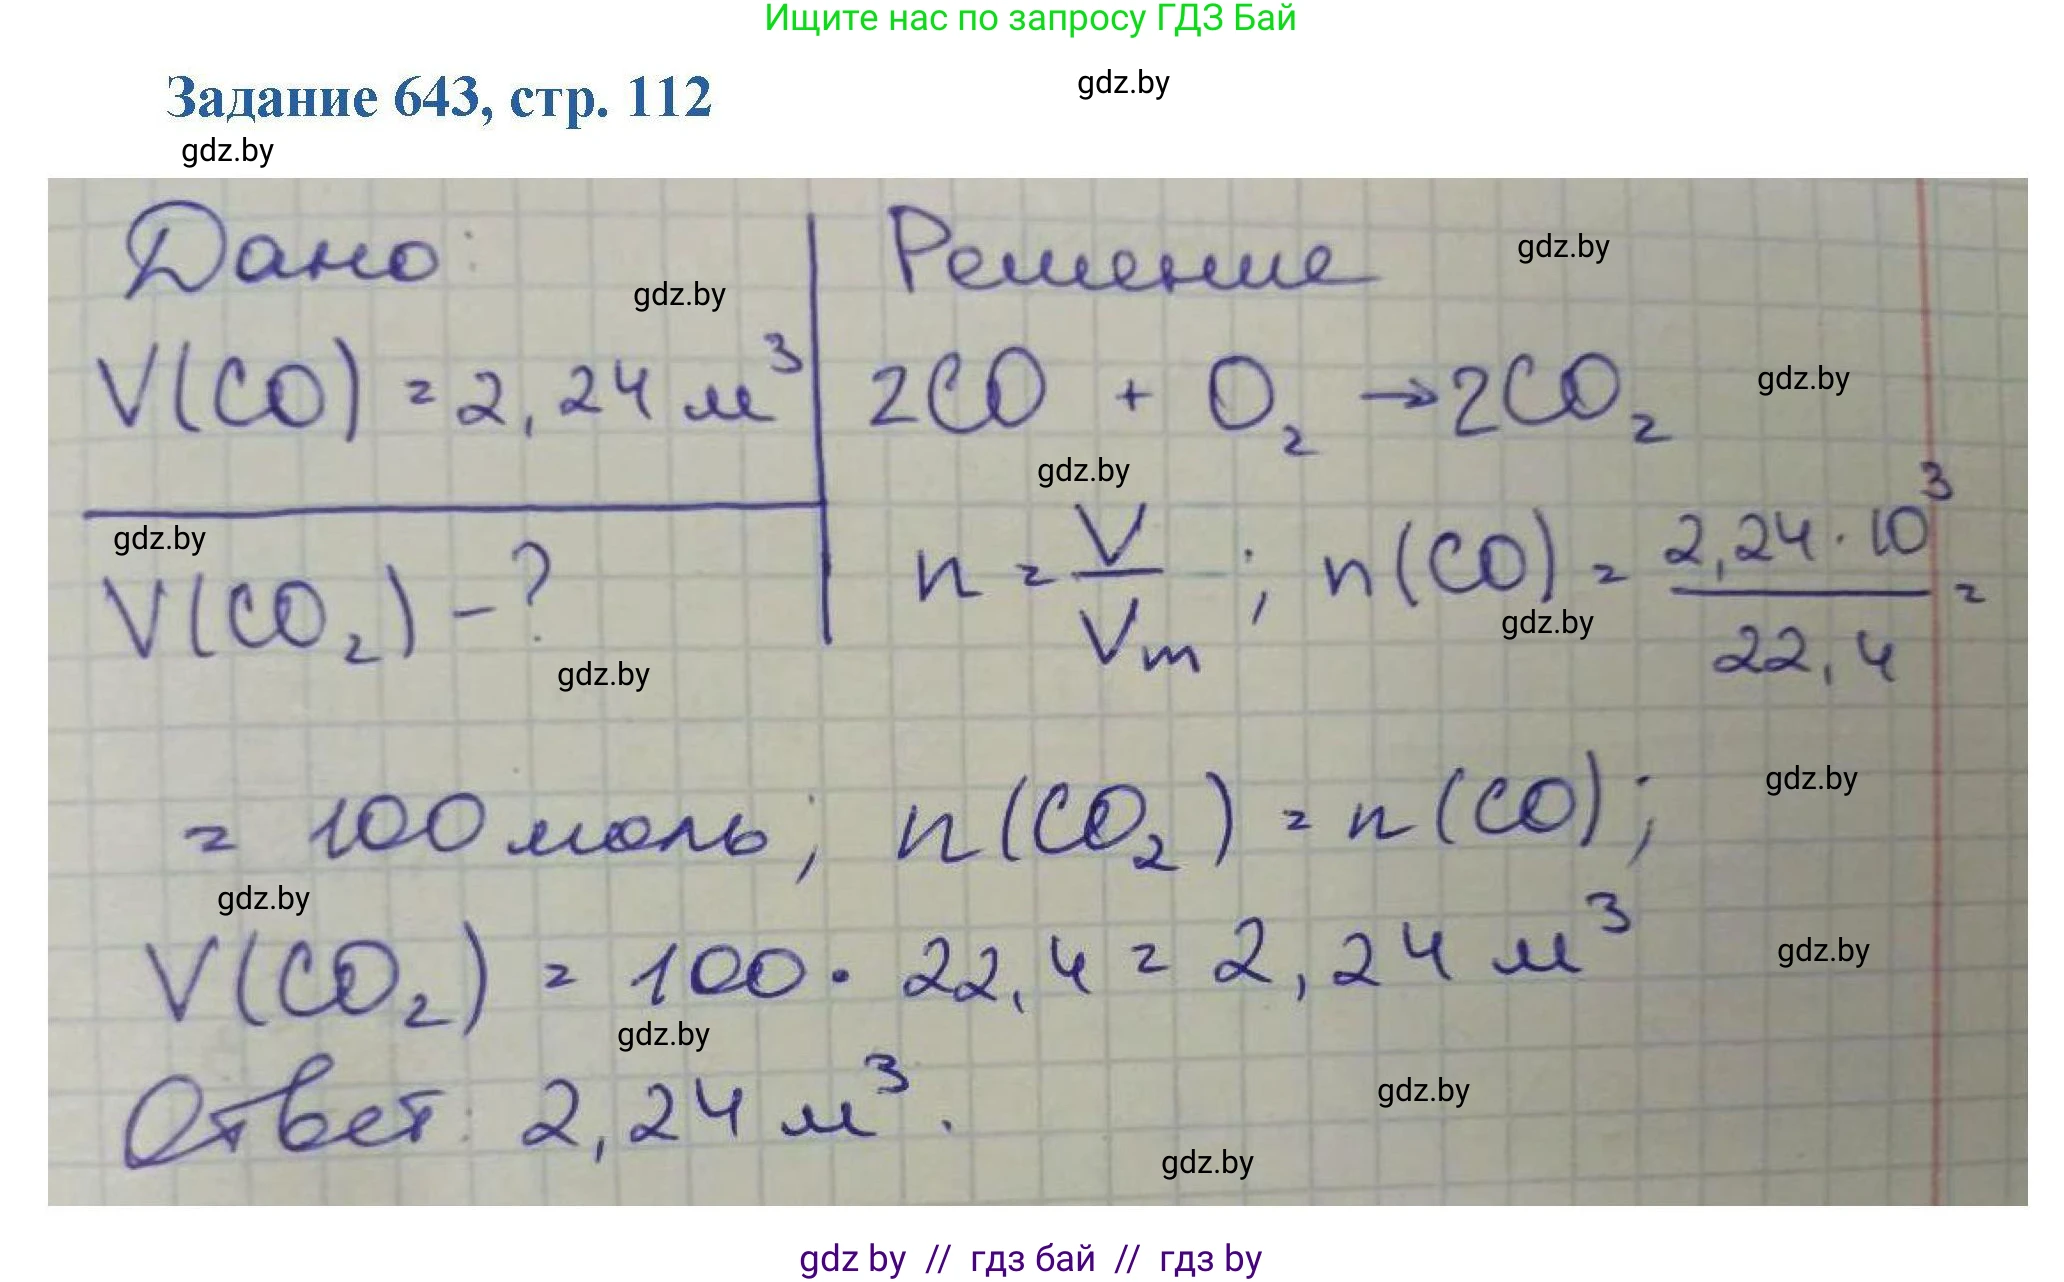 Ищите нас по запросу ГДЗ Бай
Задание 643, стр. 112
gdz.by
gdz.by
Дано:
Решение
gdz.by
gdz.by
V(CO) = 2,24 м³
2CO + O₂ → 2CO₂
gdz.by
gdz.by
gdz.by
V(CO₂) - ?
n = V/Vm ; n(CO) = 2,24 · 10³/22,4 =
gdz.by
gdz.by
= 100 моль; n(CO₂) = n(CO);
gdz.by
gdz.by
V(CO₂) = 100 · 22,4 = 2,24 м³
gdz.by
gdz.by
Ответ: 2,24 м³.
gdz.by
gdz.by
gdz by // гдз бай // гдз by